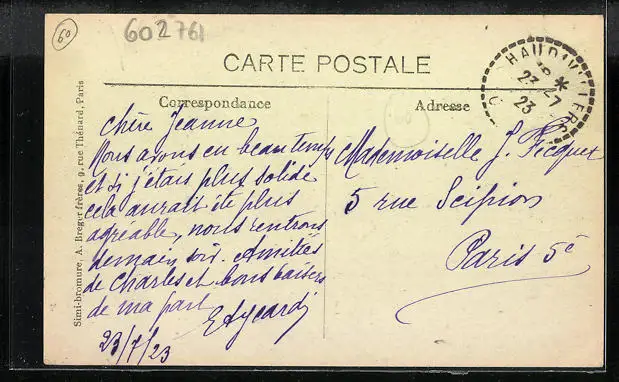 60
602761
CARTE POSTALE
HAUDIVILLERS
23-7
23
Correspondance
Adresse
60
Chère Jeanne
Nous avons eu beau temps
et si j'étais plus solide
cela aurait été plus
agréable, nous rentrons
demain soir. Amitiés
de Charles et bons baisers
de ma part
23/7/23
Mademoiselle J. Fecquet
5 rue Scipion
Paris 5e
Simi-bromure, A. Breger frères, 9, rue Thénard, Paris